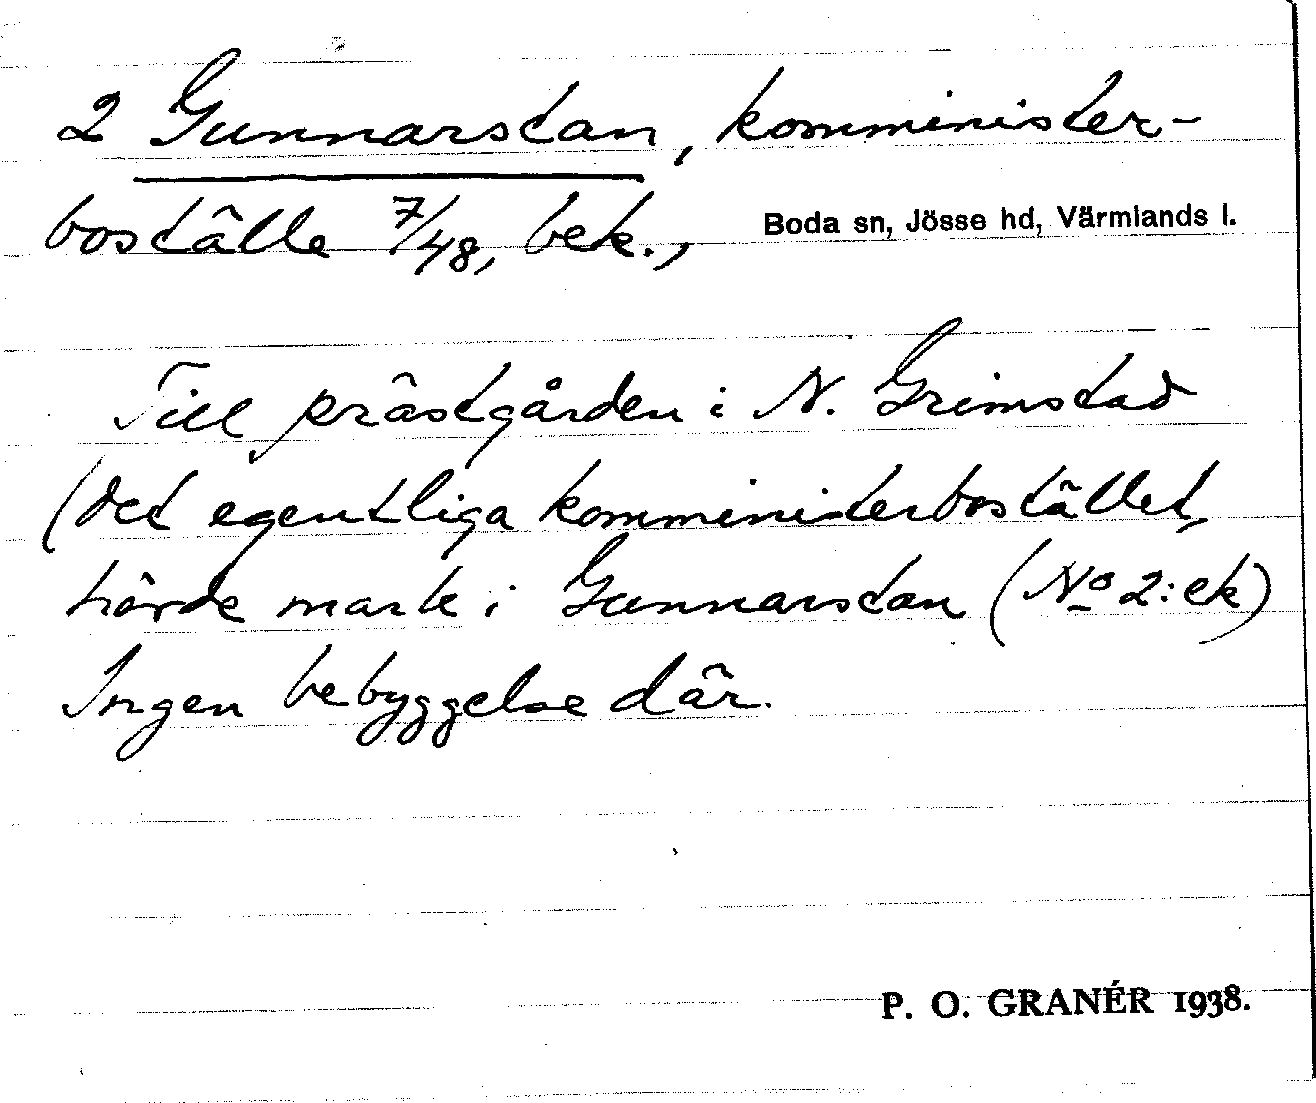 2 Gunnarstan, komminister-
boställe 7/48, bek., Boda sn, Jösse hd, Värmlands l.
Till prästgården i N. Grimstad
(det egentliga komministerbostället,
hörde mark i Gunnarstan (No 2: ek)
Ingen bebyggelse där.
P. O. GRANÉR 1938.